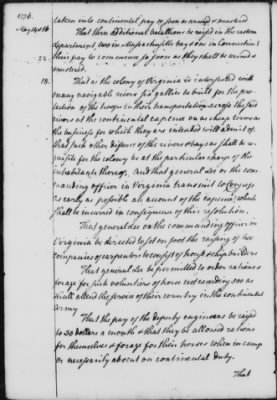 1776.
May 14 & 16
taken into continental pay so soon as armed & mustered
That three additional battalions be raised in the eastern
department, two in Massachusetts bay & one in Connecticut
their pay to commence so soon as they shall be armed &
mustered.
That as the colony of Virginia is intersected with
many navigable rivers six gallies be built for the pro-
tection of the troops in their transportation across the said
rivers at the continental expence on as cheap terms as
the business for which they are intended will admit of:
that such other defence of the rivers & bays as shall be re-
quisite for the colony be at the particular charge of the
inhabitants thereof, And that general Lee or the com-
manding officer in Virginia transmit to Congress
as early as possible an account of the expence, which
shall be incurred in consequence of this resolution.
That general Lee or the commanding officer in
Virginia be directed to set on foot the raising of two
companies of carpenters to consist of troops & ship builders
That general Lee be permitted to order rations &
forage for such volunteers of horse not exceeding 200 as
shall attend the service of their country in the continental
army
That the pay of the deputy engineers be raised
to 20 dollars a month & that they be allowed rations
for themselves & forage for their horses when in camp
or necessarily absent on continental duty.
That